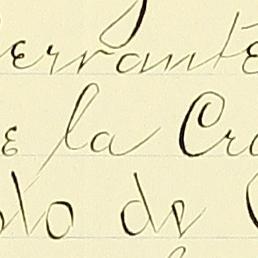 ervante
e la Cr
lo de